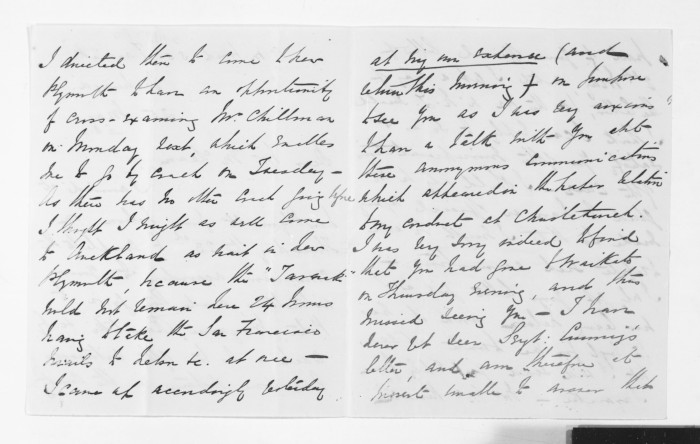 I directed them to come to New
Plymouth to have an opportunity
of cross-examining Mr. Chillman
on Monday next, which enables
me to go by coach on Tuesday -
As there was no other coach going before
I thought I might as well come
to Auckland as wait in New
Plymouth, because the "Taranaki"
could not remain here 24 hours
having to take the San Francisco
mails to Nelson &c. at once -
I came up accordingly yesterday
at my own expense (and
return this evening) on purpose
to see you as I was very anxious
to have a talk with you abt
these anonymous communications
which appeared in the paper relative
to my conduct at Christchurch.
I was very sorry indeed to find
that you had gone to Waikato
on Thursday evening, and thus
missed seeing you - I have
never yet seen Sergt: 
letter, and am therefore at
present unable to answer that